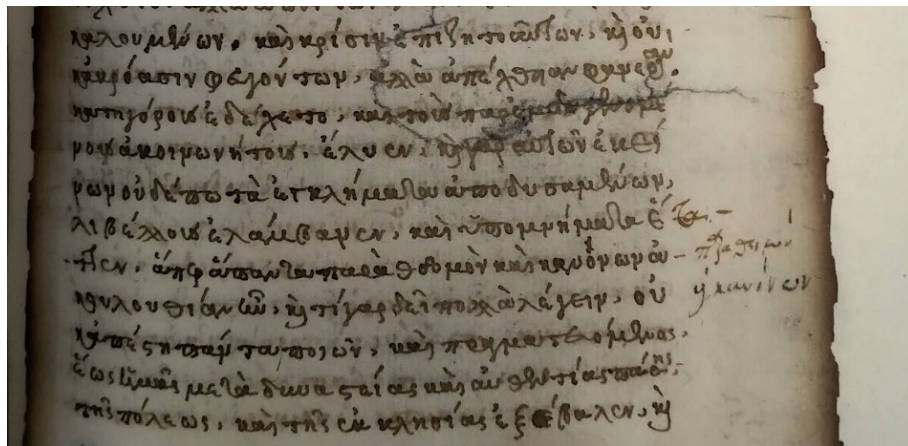 καλουμένων, καὶ κρίσιν ἐπιζητούντων, καὶ οὐ
κ ἀκρόασιν φευγόντων, ἀλλὰ ἀπέχθειαν φανεράν,
κατηγόρους ἐδέχετο, καὶ τοὺς παρ' ἐμοῦ γενομέ
νους ἀκοινωνήτους, ἔλυεν, καὶ παρ' αὐτῶν ἐκεί
νων οὐδέπω τὰ ἐγκλήματα ἀποδυσαμένων,
λιβέλλους ἐλάμβανεν, καὶ ὑπομνήματα ἔπρατ-
τεν, ἅπερ ἅπαντα παρὰ θεσμὸν καὶ κανόνων ἀ-
κολουθίαν ἦν, καὶ τί γὰρ δεῖ πολλὰ λέγειν, οὐ
κ ἀπέστη πάντα ποιῶν, καὶ πραγματευόμενος,
ἕως ἡμᾶς μετὰ δυναστείας καὶ αὐθεντίας πάσης,
τῆς πόλεως, καὶ τῆς ἐκκλησίας ἐξέβαλεν, καὶ
κανόνων